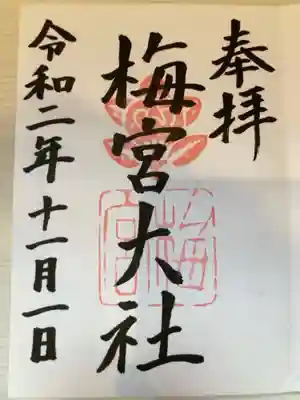 奉拝
梅宮大社
令和二年十一月一日
梅宮